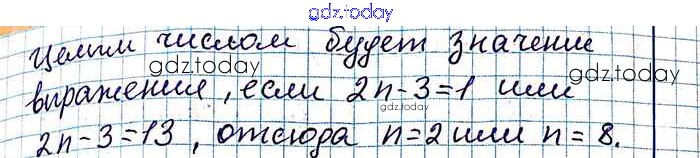 gdz.today
Целым числом будет значение
gdz.today
gdz.today
выражения, если 2n-3=1 или
gdz.today
2n-3=13, отсюда n=2 или n=8.